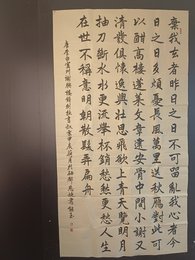 棄我去者昨日之日不可留亂我心者今
日之日多煩憂長風萬里送秋雁對此可
以酣高樓蓬萊文章建安骨中間小謝又
清發俱懷逸興壯思飛欲上青天覽明月
抽刀斷水水更流舉杯銷愁愁更愁人生
在世不稱意明朝散髮弄扁舟
唐李白宣州謝朓樓餞別校書叔雲